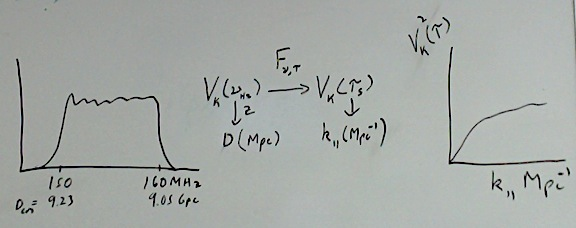 150 160MHz
D_cm= 9.23 9.05 Gpc
F_ν,τ
V_K(ν_Hz) → V_K(τ_s)
↓z ↓
D(Mpc) k_∥(Mpc⁻¹)
V_K²(τ)
k_∥ Mpc⁻¹